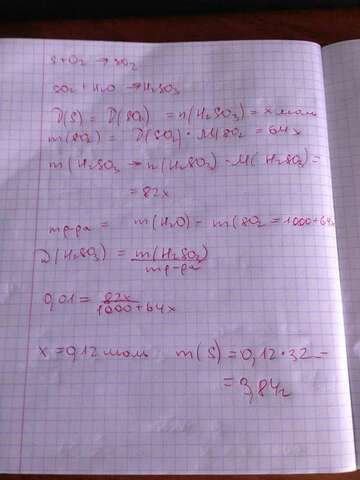 S+O₂ → SO₂
SO₂ + H₂O → H₂SO₃
D(S) = D(SO₂) = n(H₂SO₃) = x моль
m(SO₂) = D(SO₂) · M(SO₂ = 64x
m(H₂SO₃ → n(H₂SO₃) · M(H₂SO₃) =
= 82x
mр-ра = m(H₂O) - m(SO₂ = 1000+64x
D(H₂SO₃) = m(H₂SO₃)
mр-ра
0,01 = 82x
1000+64x
x = 0,12 моль m(S) = 0,12·32 =
= 3,84г